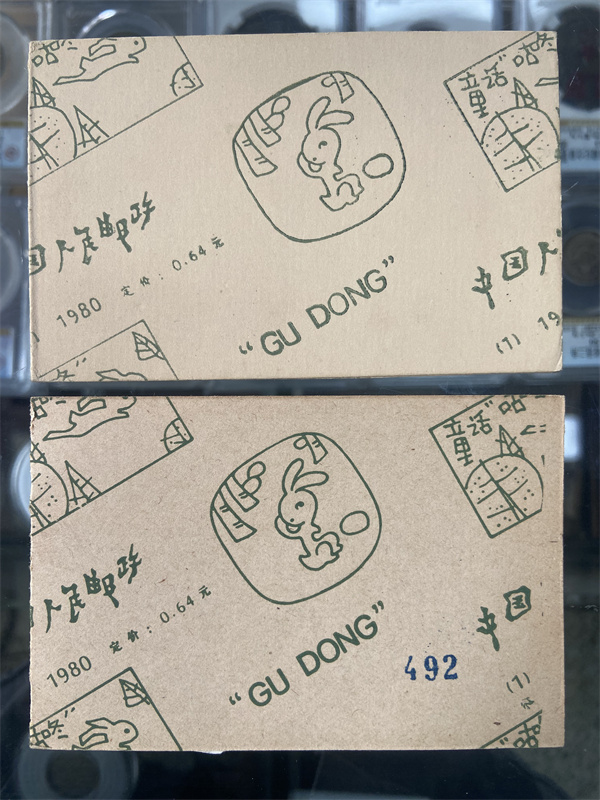 咕咚
童话 咕咚
国人民邮政
1980 定价：0.64元
中国人
(1) 19
"GU DONG"
咚"
童话" 咕
人民邮政
1980 定价：0.64元
中国
(1)
"GU DONG"
492
咕咚"
咕咚